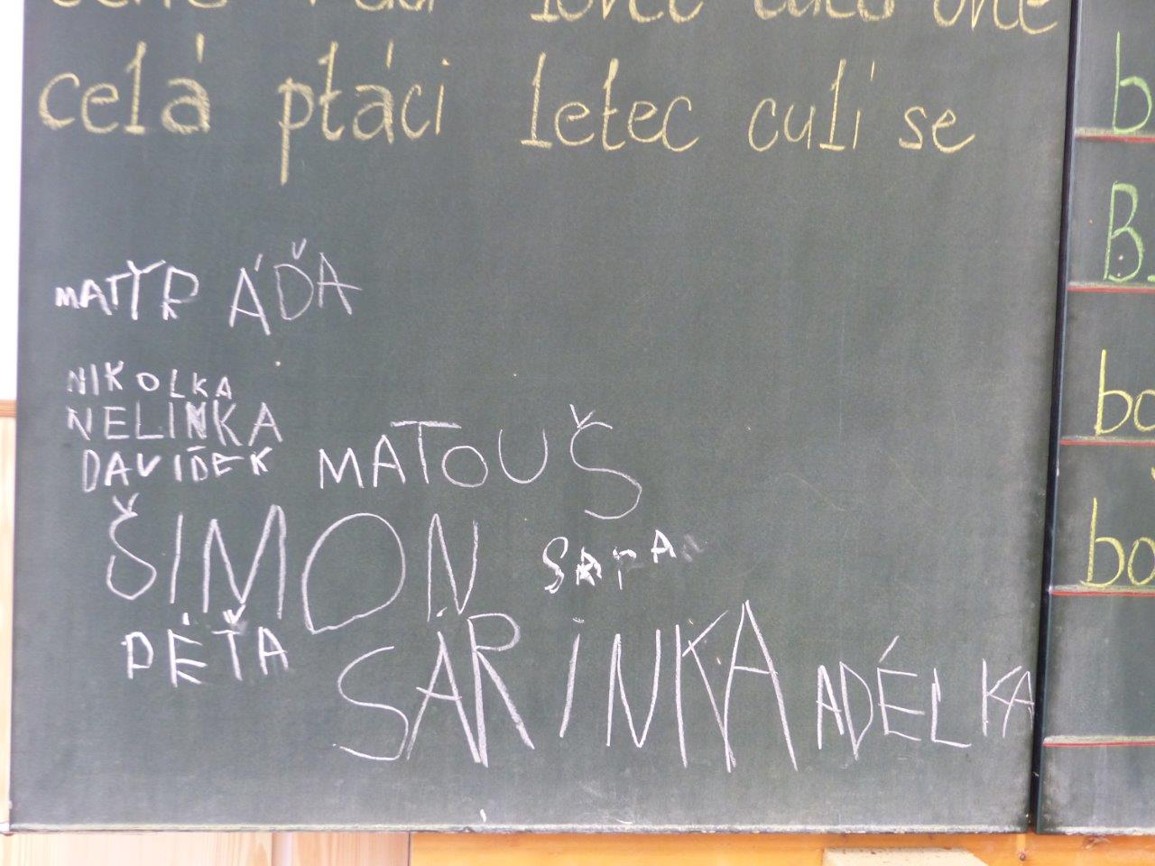 celá ptáci letec culí se
b
B.
MATÝR ÁĎA
NIKOLKA
NELINKA
DAVÍDEK
MATOUŠ
ŠIMON
SARA
PÉŤA
SÁRINKA
ADÉLKA
bo
bo